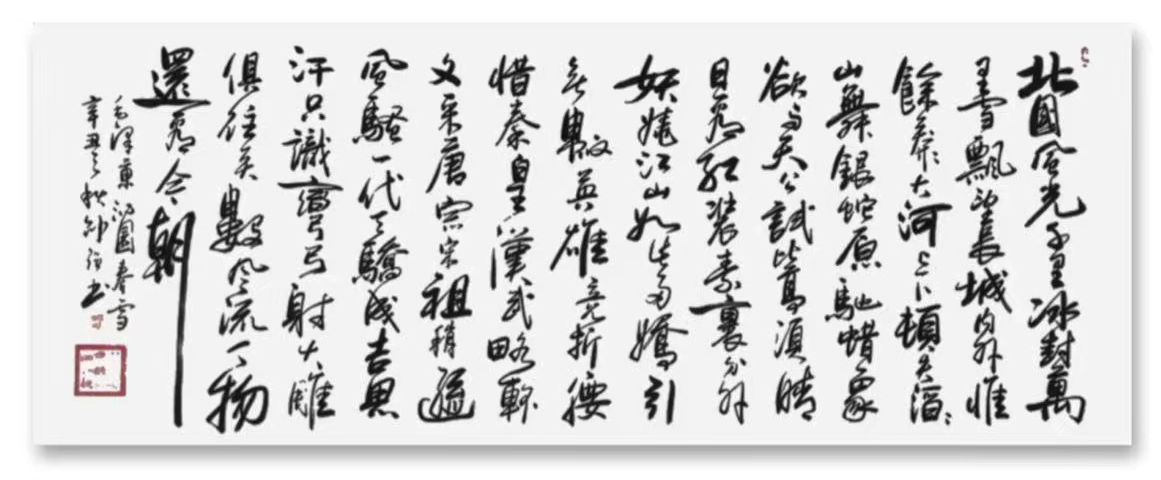 北國風光千里冰封萬
里雪飄望長城内外惟
餘莽莽大河上下頓失滔滔
山舞銀蛇原馳蜡象
欲与天公試比高須晴
日看紅装素裹分外
妖嬈江山如此多嬌引
無數英雄竞折腰
惜秦皇漢武略輸
文采唐宗宋祖稍遜
風騷一代天驕成吉思
汗只識彎弓射大雕
俱往矣數風流人物
還看今朝
毛澤東沁園春雪
辛丑之秋 书